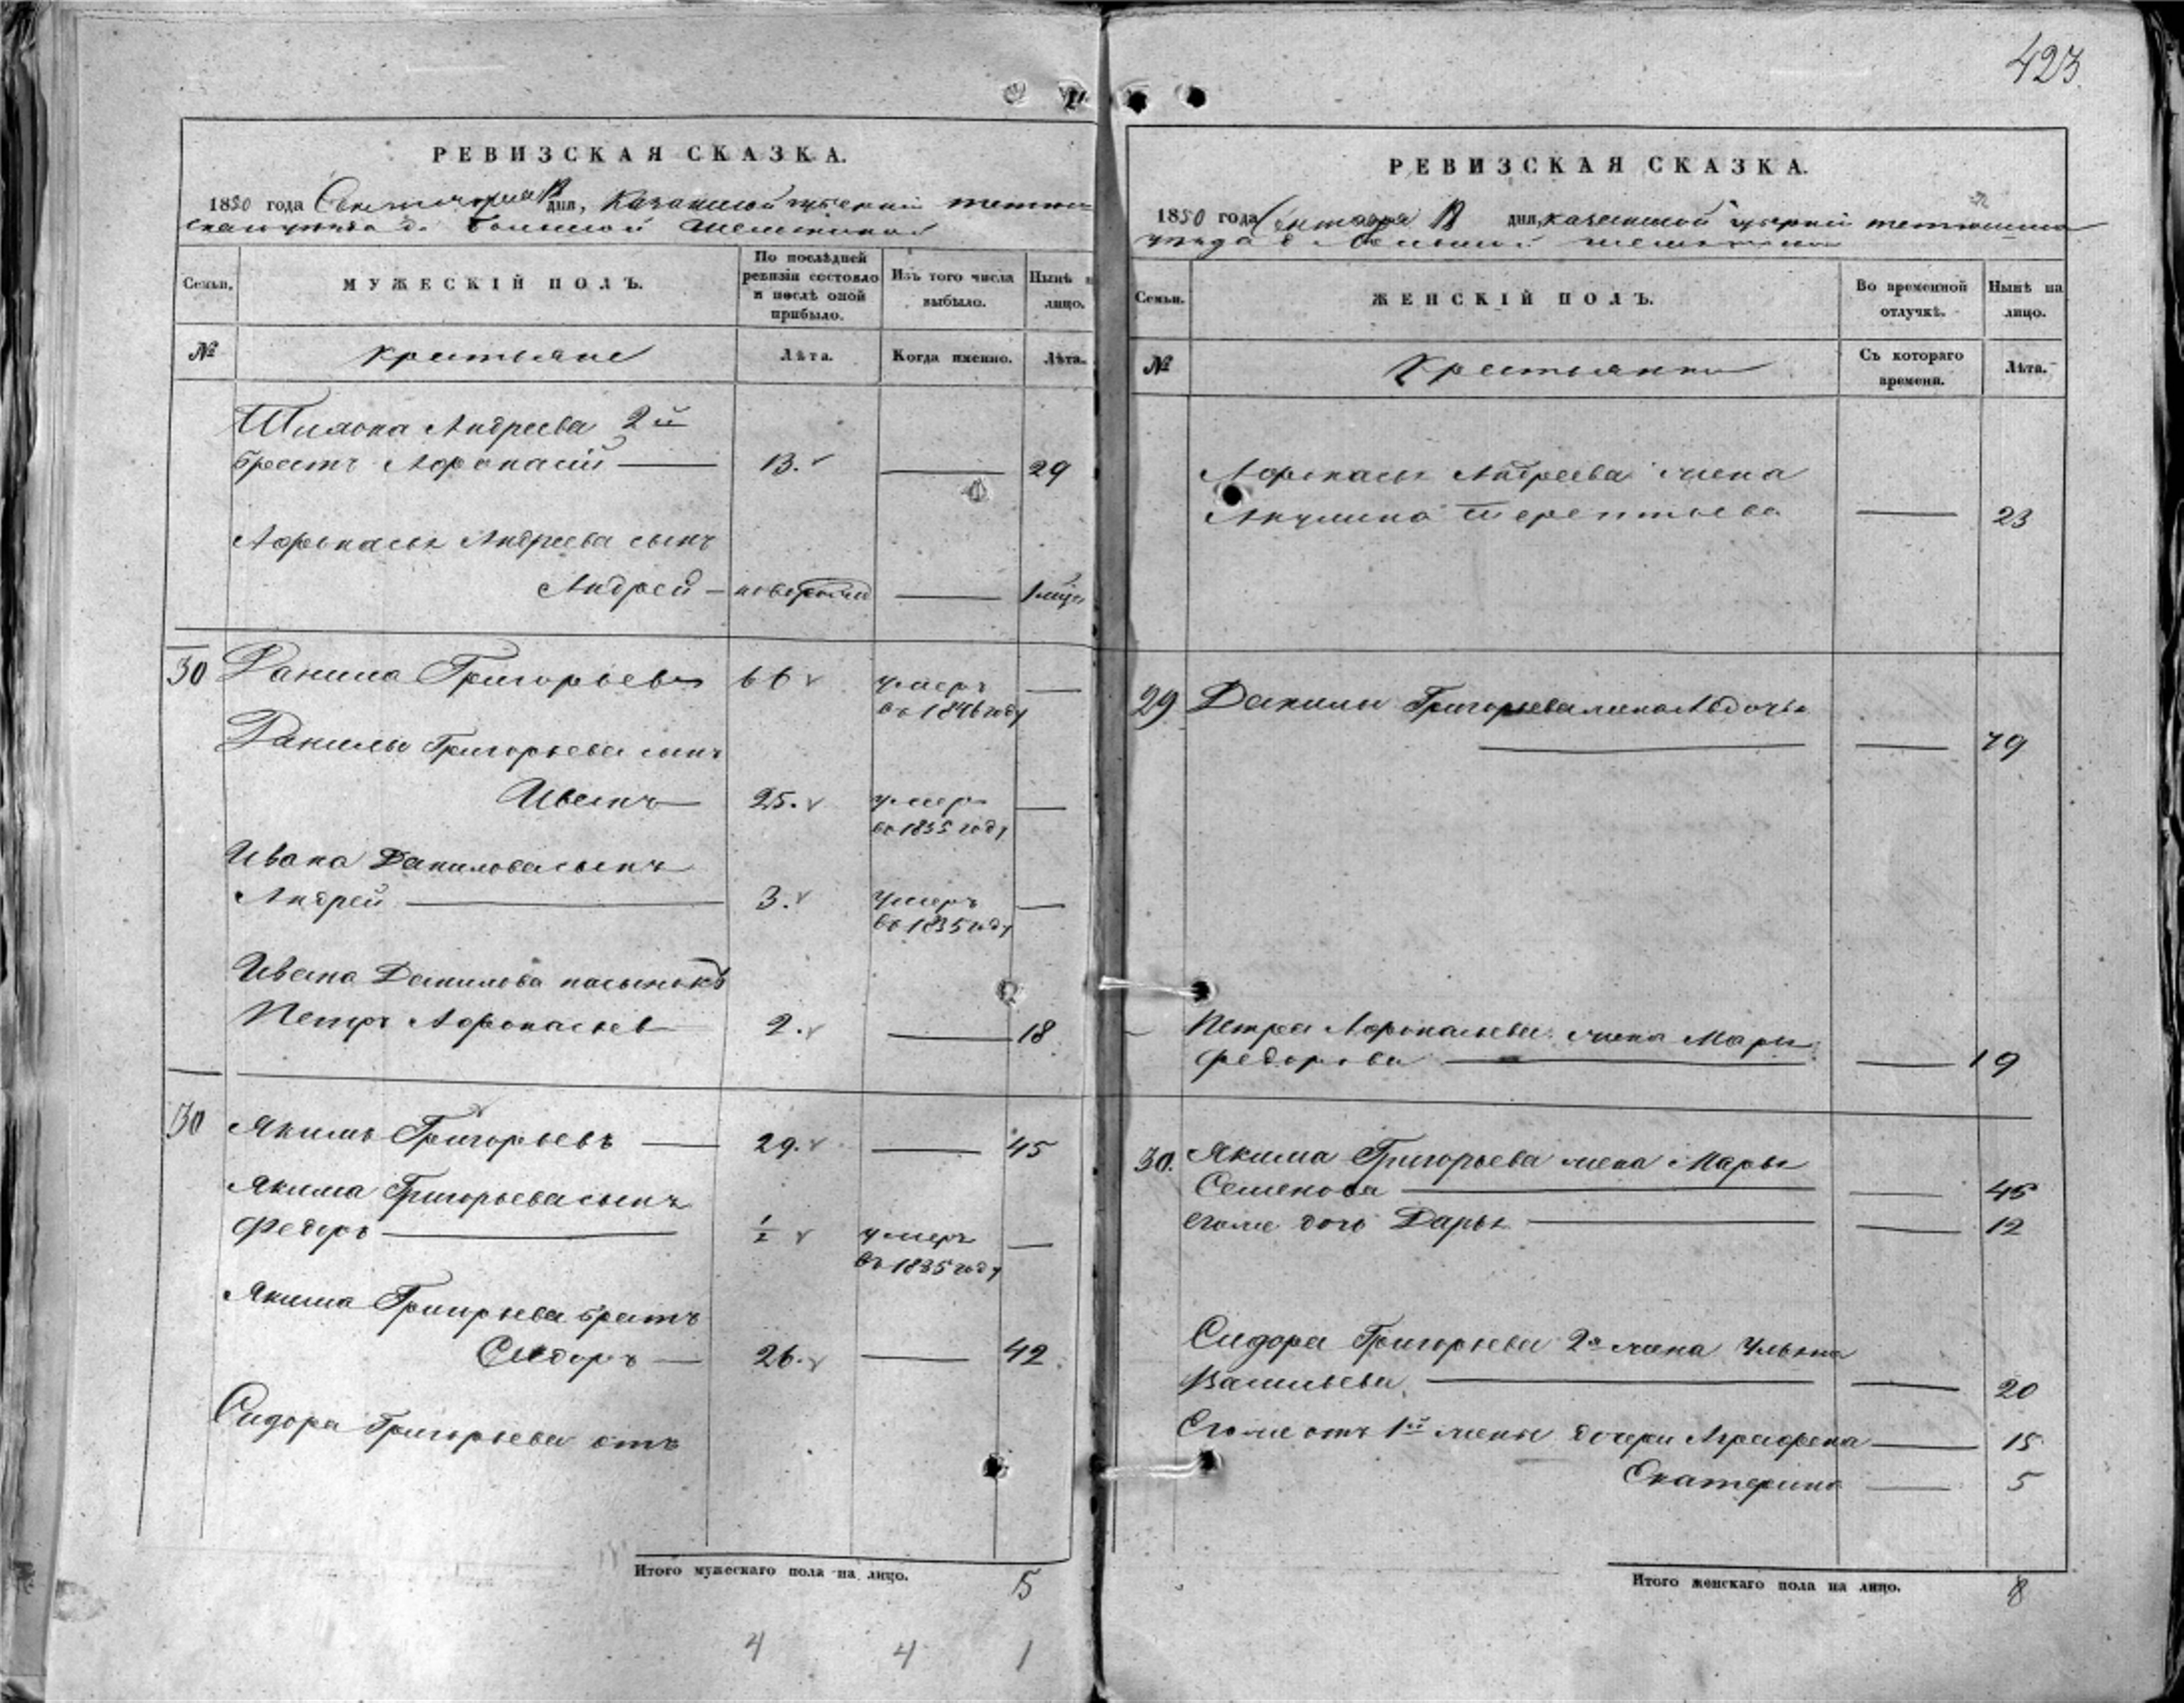 423
РЕВИЗСКАЯ СКАЗКА.
1850 года Сентября 12 дня, Казанской губерніи
уѣзда д. Большой
Семьи.
МУЖЕСКІЙ ПОЛЪ.
По послѣдней ревизіи состояло и послѣ оной прибыло.
Изъ того числа выбыло.
Нынѣ на лицо.
№
Крестьяне
Лѣта.
Когда именно.
Лѣта.
Андреева 2й
братъ Афонасій 13. 29
Афонасья Андреева сынъ
Андрей новорожд
30 Данила Григорьевъ 66 умеръ
въ 1846 году
Данилы Григорьева сынъ
Иванъ 25. умеръ
въ 1835 году
Ивана Данилова сынъ
Андрей 3. умеръ
въ 1835 году
Ивана Данилова пасынокъ
Петръ Афонасьев 2. 18
30 Якимъ Григорьевъ 29. 45
Якима Григорьева сынъ
Федоръ 1/2 умеръ
въ 1835 году
Якима Григорьева братъ
Сидоръ 26. 42
Сидора Григорьева отъ
Итого мужескаго пола на лицо. 5
4 4 1
РЕВИЗСКАЯ СКАЗКА.
1850 года Сентября 12 дня, Казанской губерніи
уѣзда д. Большой
Семьи.
ЖЕНСКІЙ ПОЛЪ.
Во временной отлучкѣ.
Нынѣ на лицо.
№
Крестьянки
Съ котораго времени.
Лѣта.
Афонасья Андреева жена
Акулина Терентьева 23
29 Данилы Григорьева жена Авдотья
79
Петра Афонасьева жена Марья
Федорова 19
30. Якима Григорьева жена Марья
Семенова 45
Его же дочь Дарья 12
Сидора Григорьева 2я жена Ульяна
Васильева 20
Его же отъ 1й жены дочери Аграфена 15
Екатерина 5
Итого женскаго пола на лицо. 8